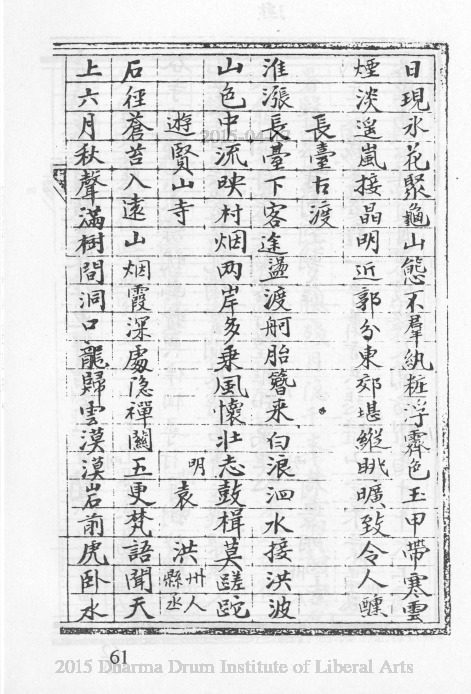 日現氷花聚龜山態不羣紈粧浮霽色玉甲帶寒雲
煙淡遥嵐接晶明近郭分東郊堪縱眺曠致令人醺
長臺古渡
淮漲長臺下客途盪渡舸胎簪来白浪泗水接洪波
山色中流映村烟两岸多乗風懐壮志鼓楫莫蹉跎
遊賢山寺 明 袁 洪 州人縣丞
石徑蒼苔入遠山烟霞深處隐禪關五更梵語聞天
上六月秋聲满樹間洞口龍歸雲漠漠岩前虎卧水
61
2015 Dharma Drum Institute of Liberal Arts